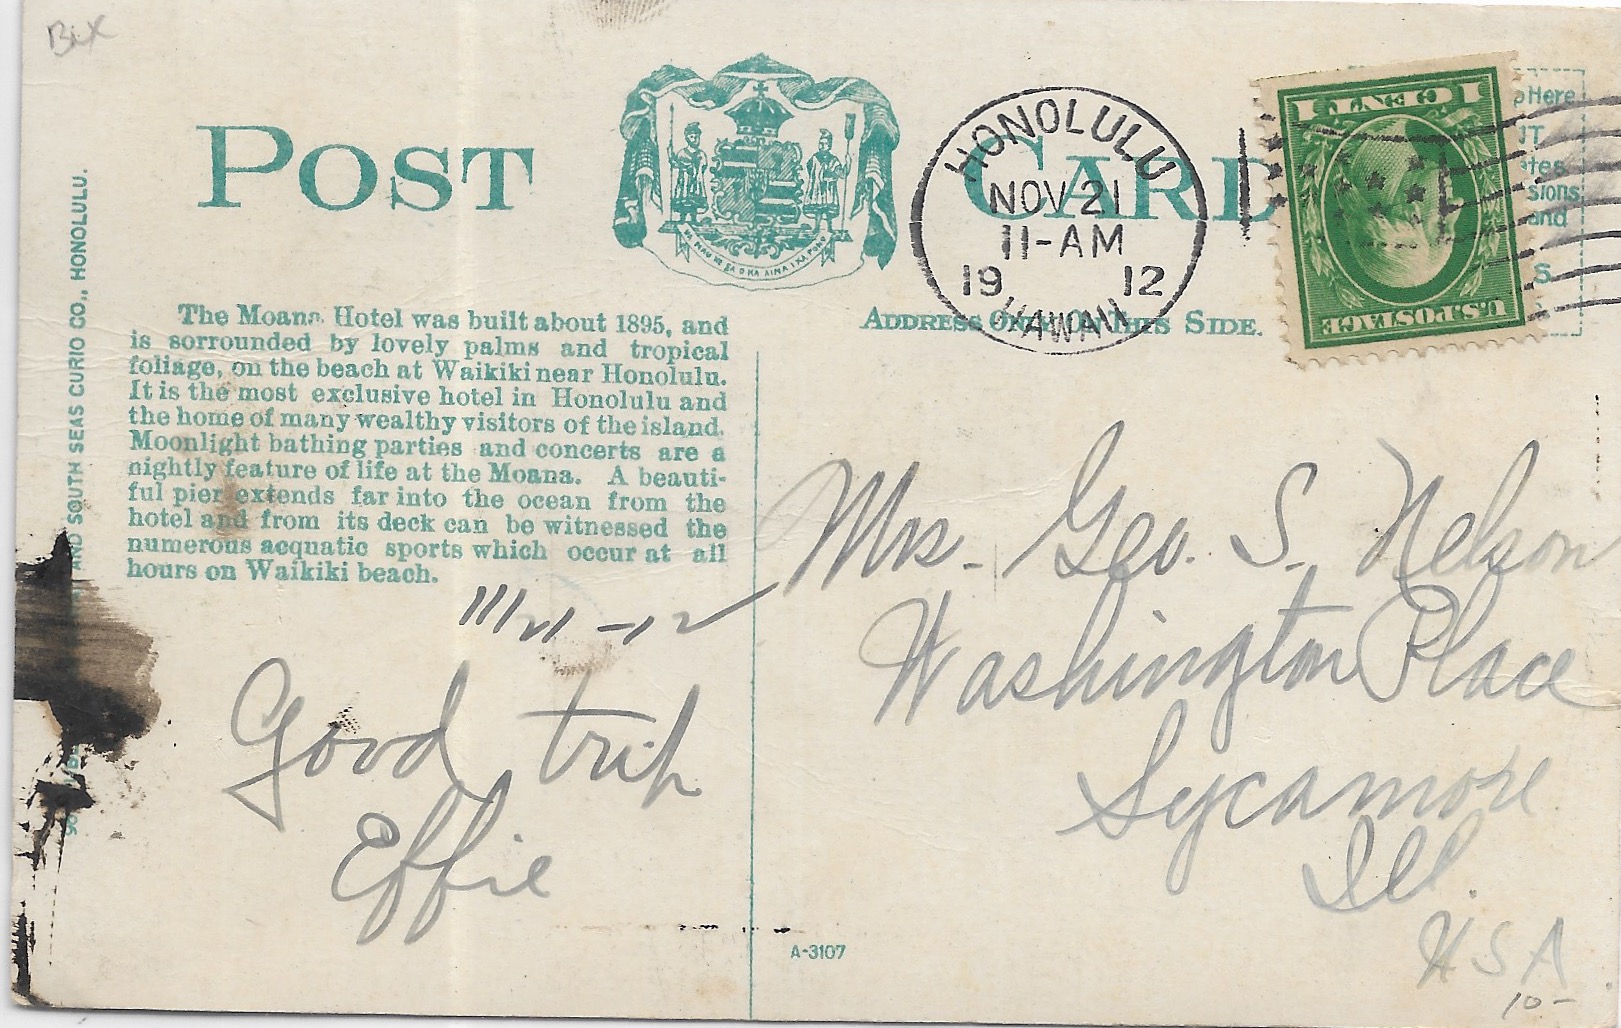 Bix
POST CARD
HONOLULU
NOV 21
11-AM
19 12
HAWAII
1 CENT 1
U.S. POSTAGE
Here
sions
and
UA MAU KE EA O KA AINA I KA PONO
ADDRESS ONLY ON THIS SIDE.
AND SOUTH SEAS CURIO CO., HONOLULU.
The Moana Hotel was built about 1895, and
is sorrounded by lovely palms and tropical
foliage, on the beach at Waikiki near Honolulu.
It is the most exclusive hotel in Honolulu and
the home of many wealthy visitors of the island.
Moonlight bathing parties and concerts are a
nightly feature of life at the Moana. A beauti-
ful pier extends far into the ocean from the
hotel and from its deck can be witnessed the
numerous acquatic sports which occur at all
hours on Waikiki beach.
11/21-12
Good trip
Effie
Mrs. Geo. S. Nelson
Washington Place
Sycamore
Ill.
USA
10-
A-3107